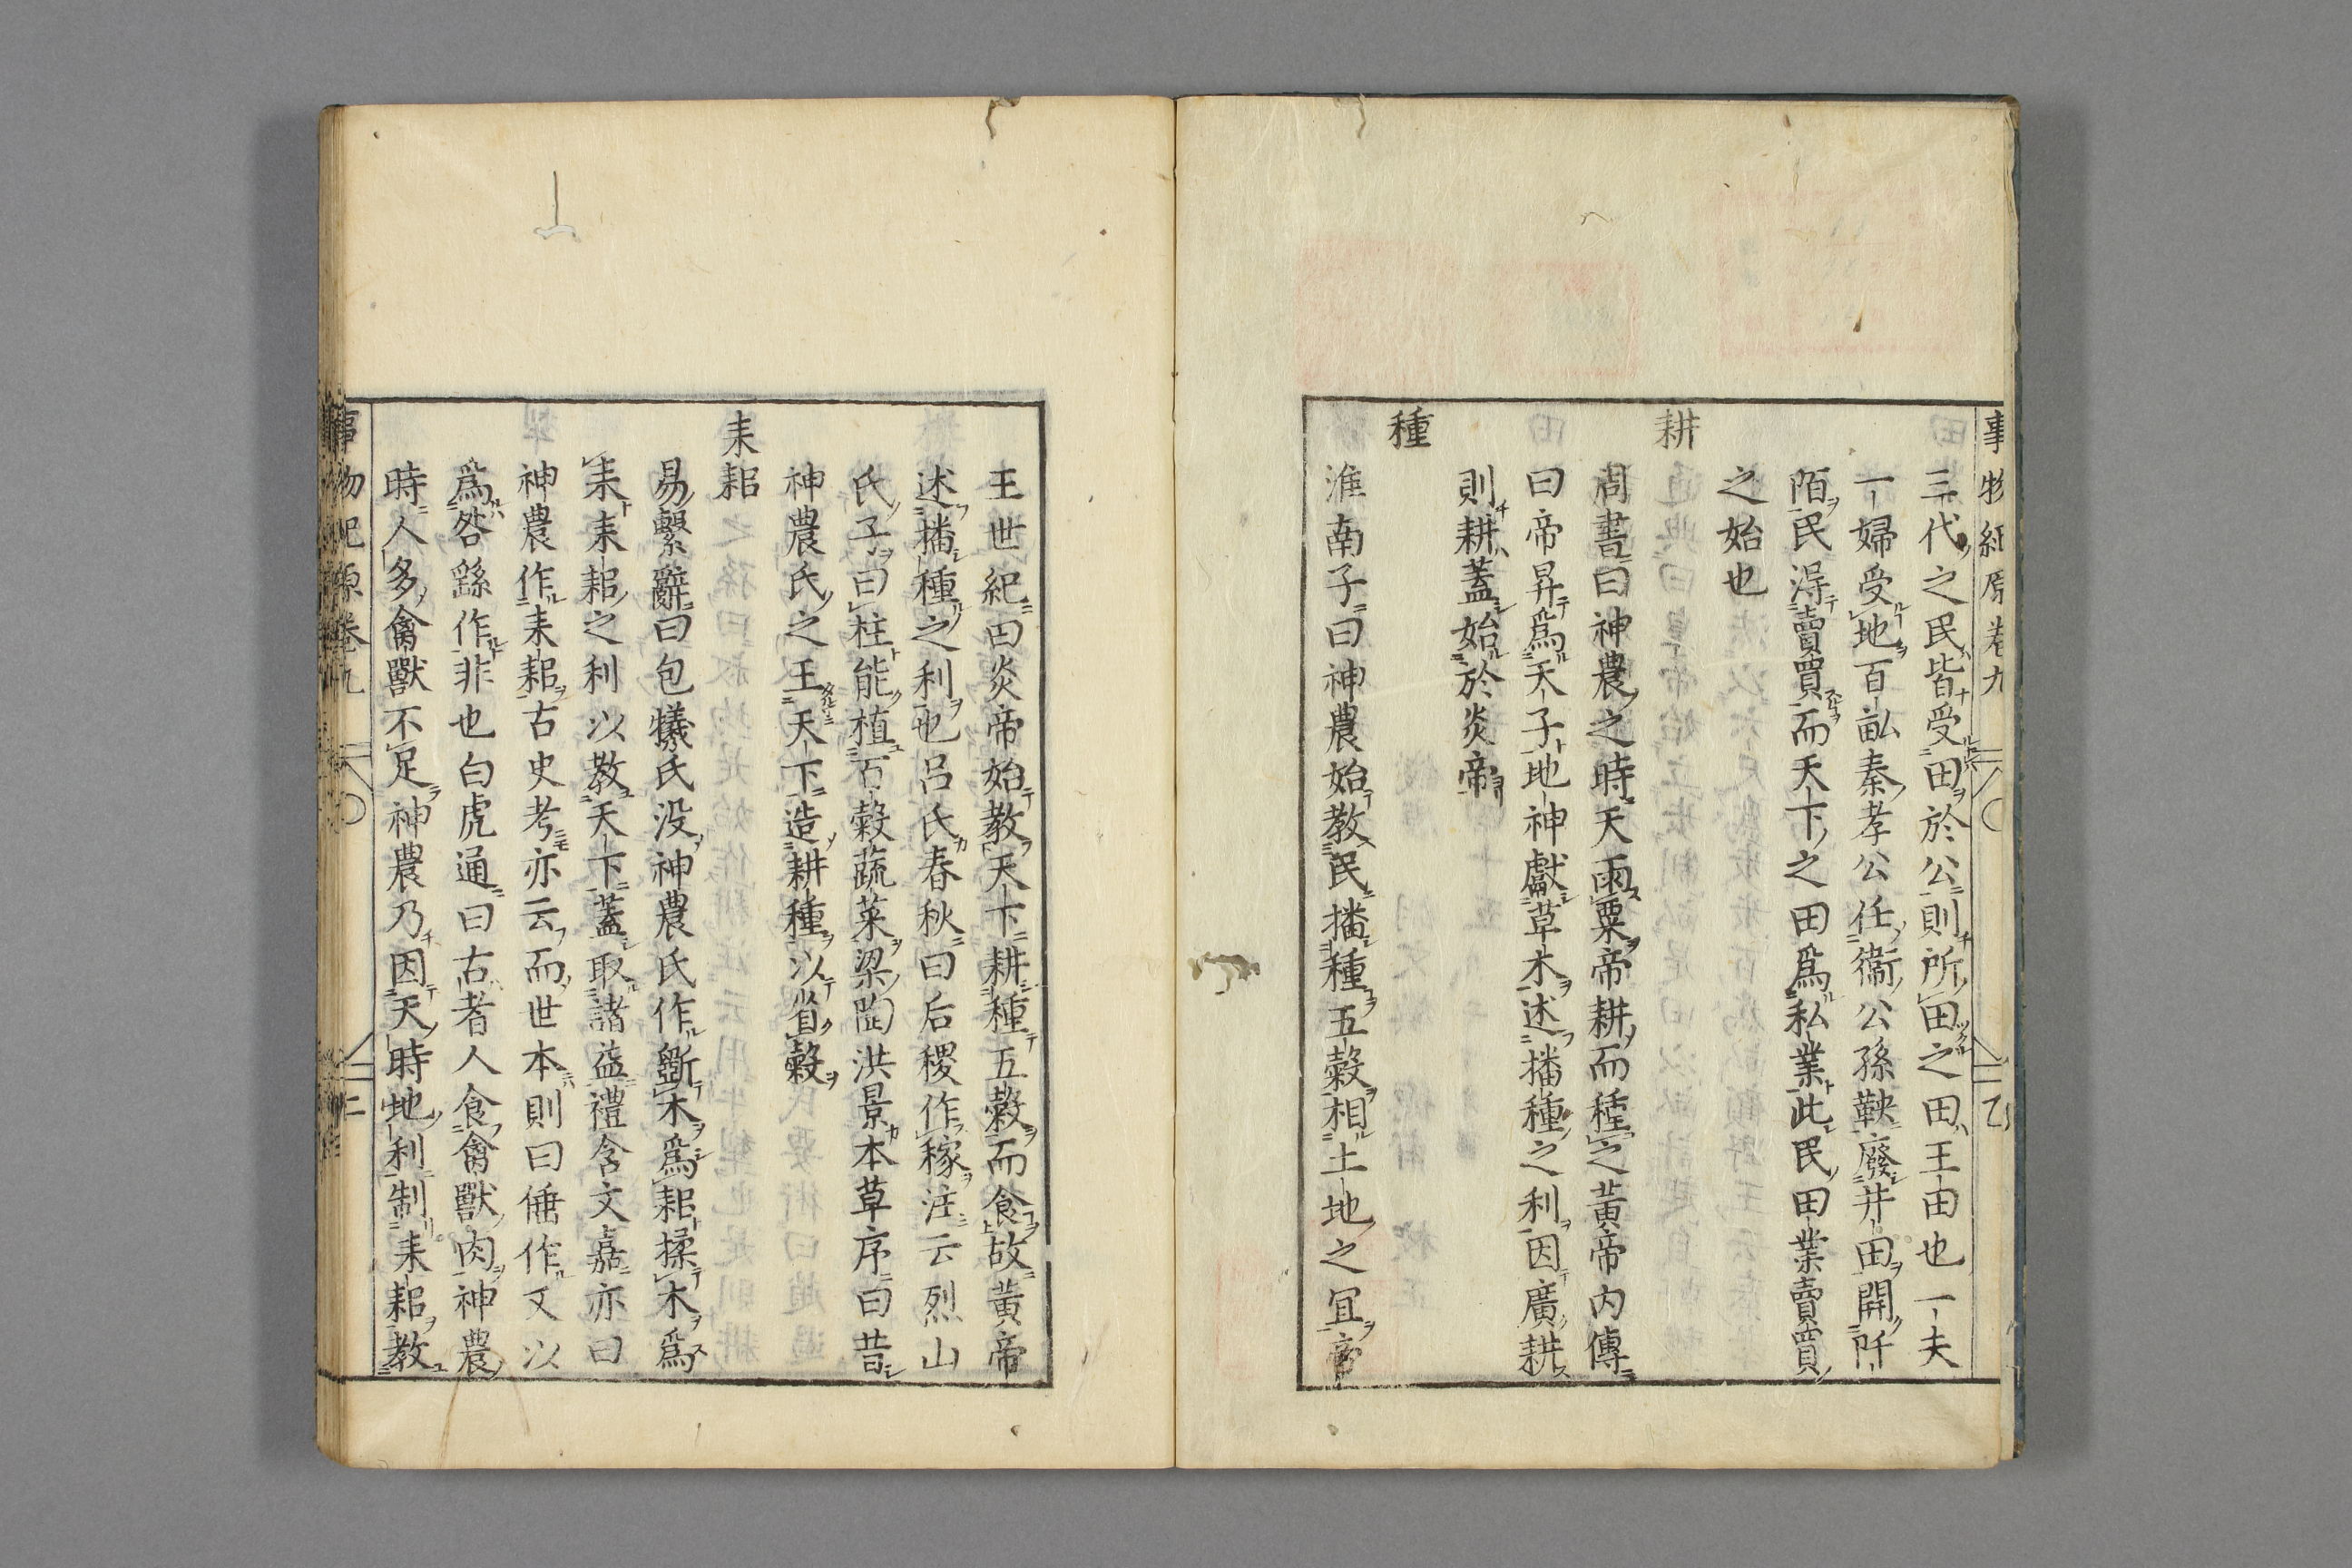 事物紀原卷九
三代之民皆受田於公則所田之田王田也一夫
一婦受地百畆秦孝公任衞公孫鞅廢井田開阡
陌民淂賣買而天下之田爲私業此民田業賣買
之始也
耕
周書曰神農之時天雨粟帝耕而種之黃帝內傳
曰帝昇爲天子地神獻草木述播種之利因廣耕
則耕蓋始於炎帝
種
淮南子曰神農始教民播種五穀相土地之冝帝
王世紀曰炎帝始教天下耕種五穀而食故黃帝
述播種之利也呂氏春秋曰后稷作稼注云烈山
氏子曰柱能植百穀蔬菜梁陶洪景本草序曰昔
神農氏之王天下造耕種以省穀
耒耜
易繫辭曰包犧氏没神農氏作斲木爲耜揉木爲
耒耒耜之利以教天下蓋取諸益禮含文嘉亦曰
神農作耒耜古史考亦云而世本則曰倕作又以
爲咎繇作非也白虎通曰古者人食禽獸肉神農
時人多禽獸不足神農乃因天時地利制耒耜教
事物紀原卷九 二